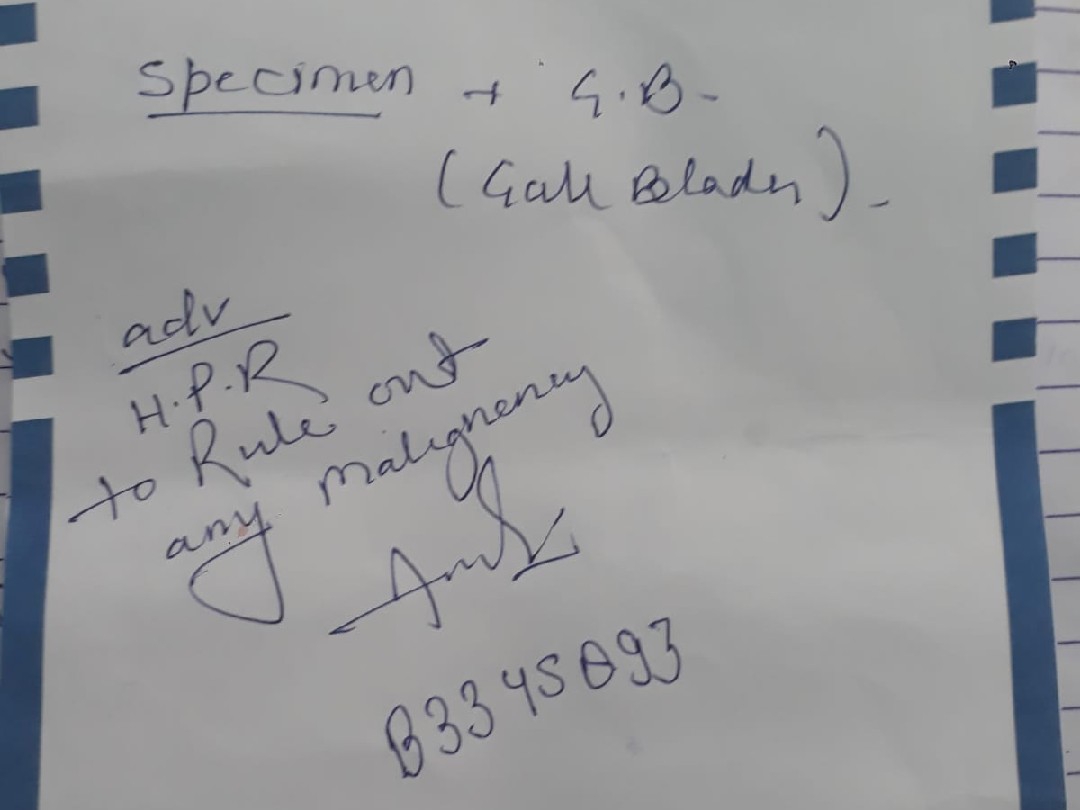 Specimen + G.B-
(Gall Blader).
adv
H.P.R
to Rule out
any malignency
B3345093